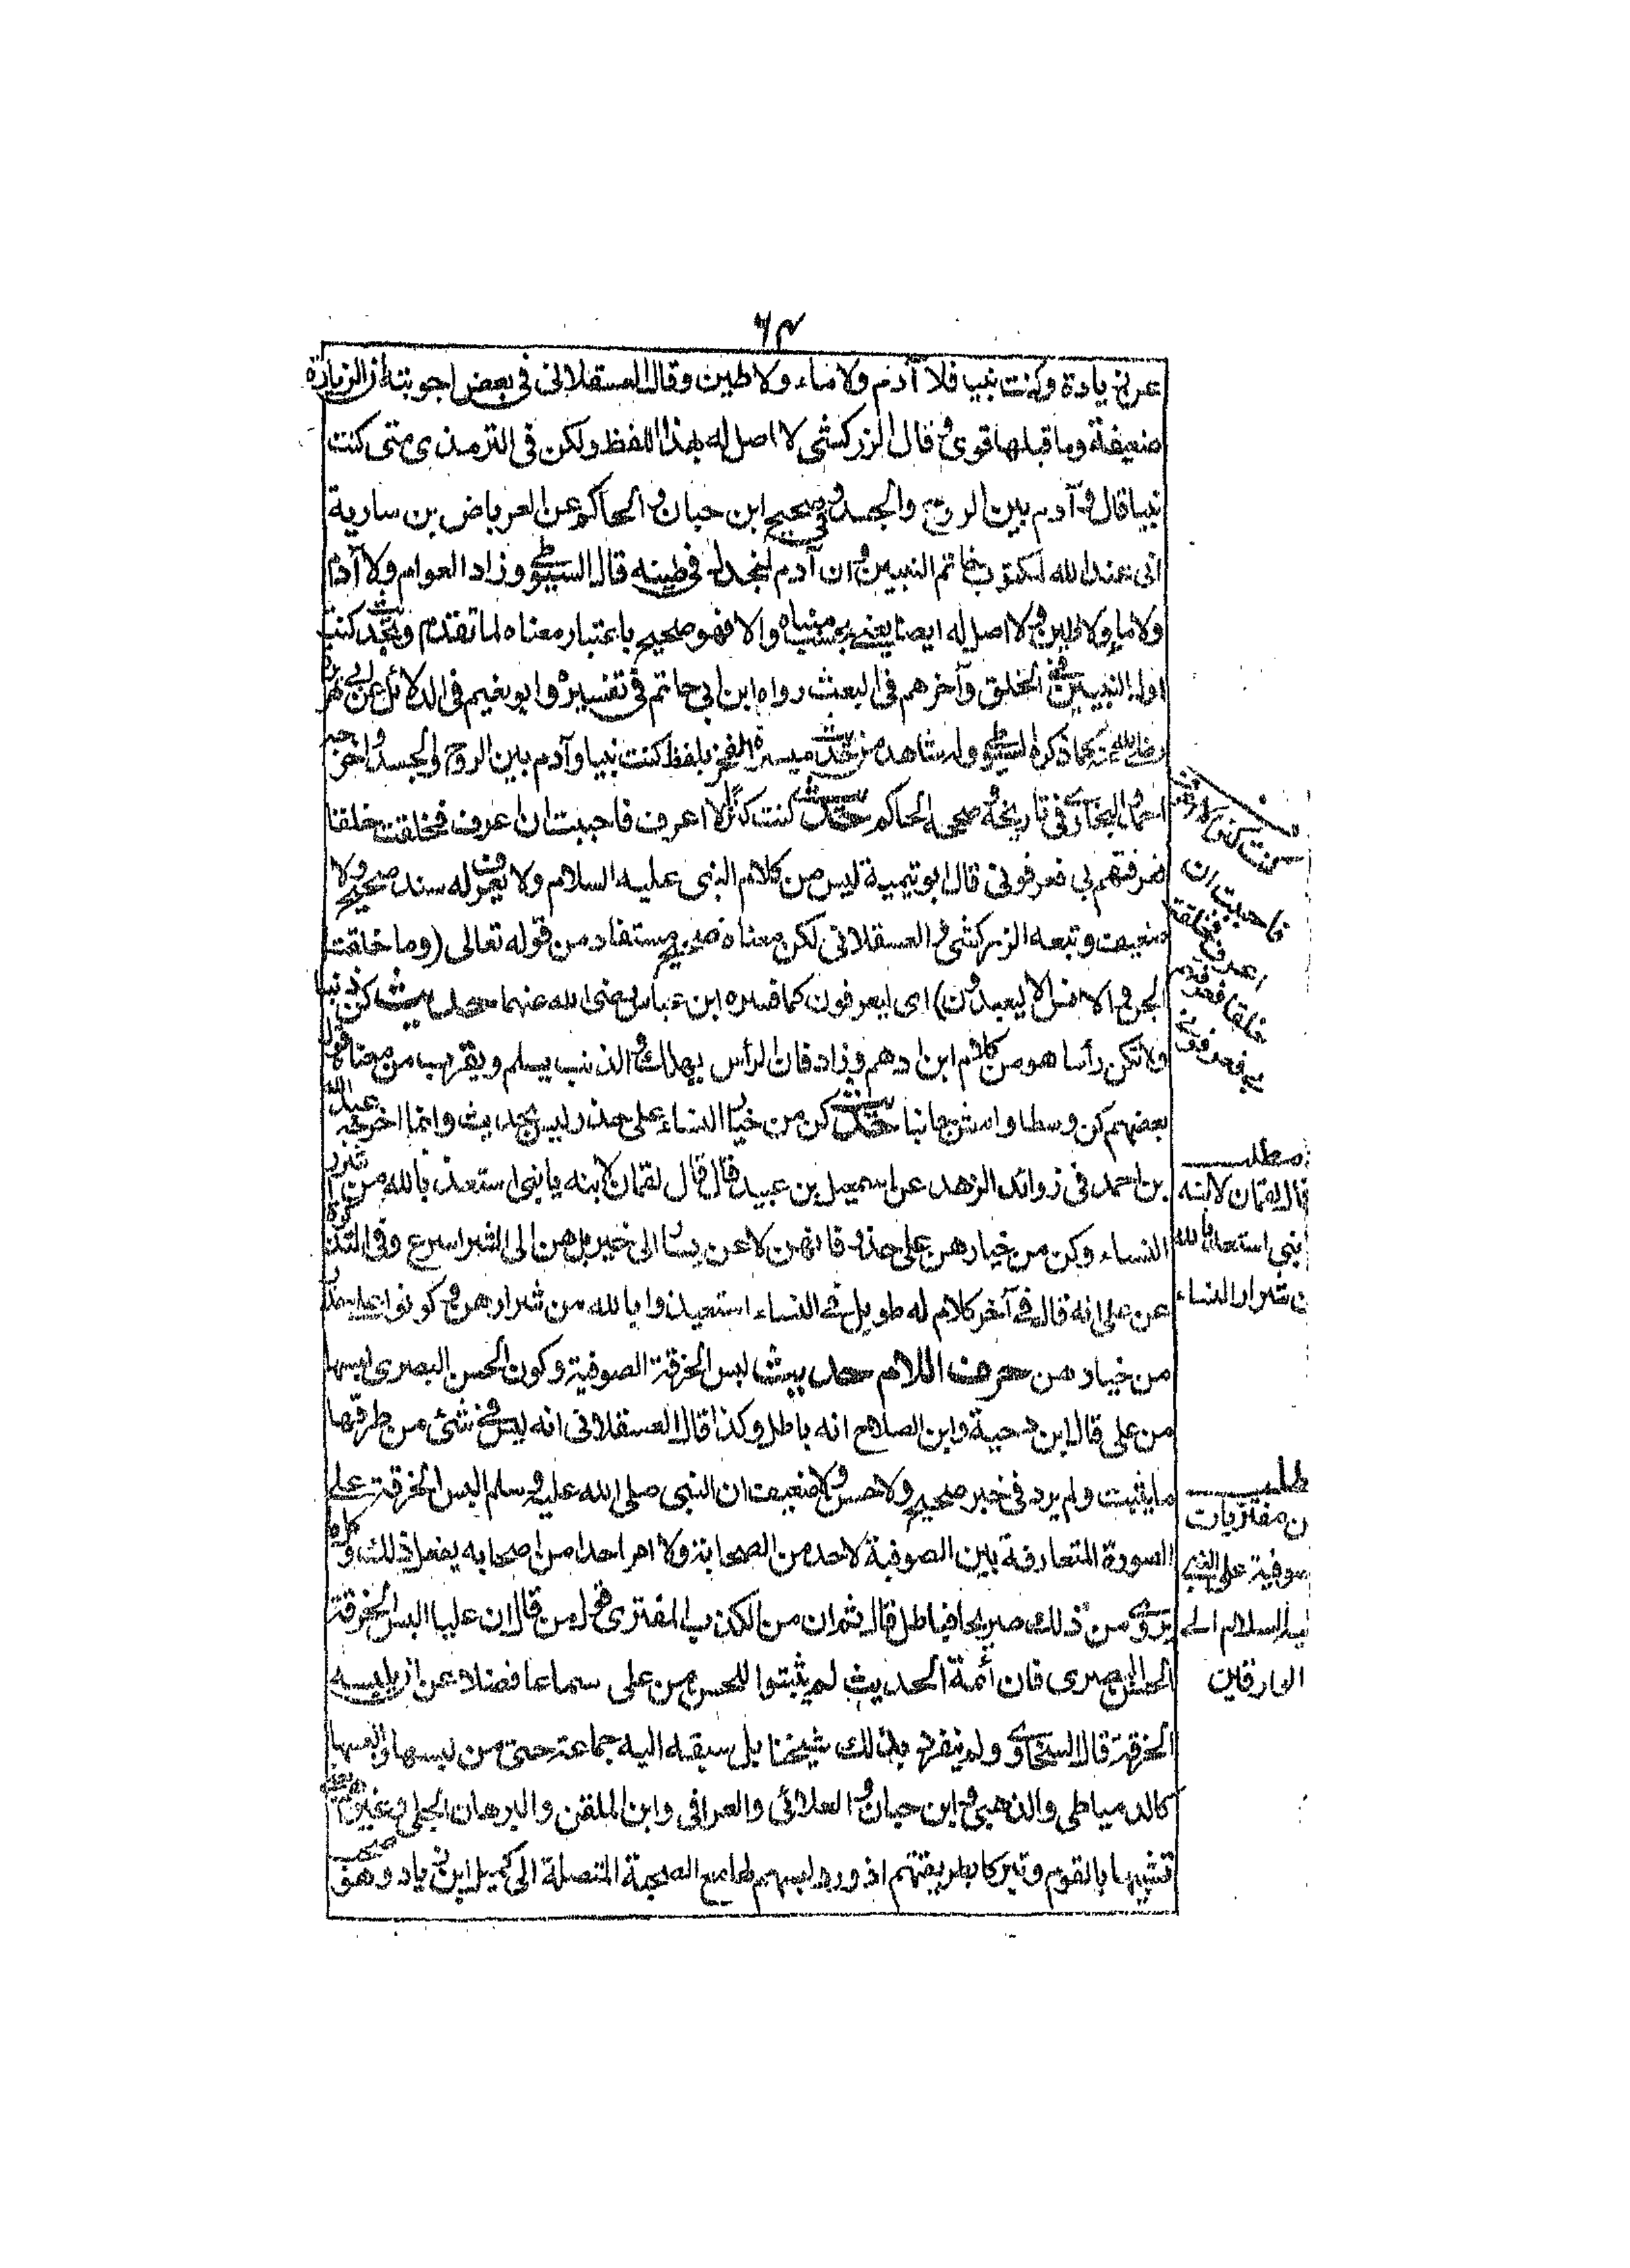 ٦٤
عن زيادة وكنت نبيا فلا آدم ولا ماء ولا طين وقال العسقلاني في بعض اجوبته ان الزيادة
ضعيفة وما قبلها قوى وقال الزركشي لا اصل له بهذا اللفظ ولكن في الترمذى متى كنت
نبيا قال وآدم بين الروح والجسد وفي صحيح ابن حبان والحاكم عن العرباض بن سارية
انى عند الله لمكتوب خاتم النبيين وان آدم لمنجدل في طينه قال السيوطي وزاد العوام ولا آدم
ولا ماء ولا طين ولا اصل له ايضا يعني بحسب مبناه والا فهو صحيح باعتبار معناه لما تقدم وحديث كنت
اول النبيين في الخلق وآخرهم في البعث رواه ابن ابي حاتم في تفسيره وابو نعيم في الدلائل عن ابي هريرة
رضي الله عنه كما ذكره السيوطي وله شاهد من حديث ميسرة الفجر بلفظ كنت نبيا وآدم بين الروح والجسد اخرجه
احمد والبخاري في تاريخه وصححه الحاكم حديث كنت كنزا لا اعرف فاحببت ان اعرف فخلقت خلقا
فعرفتهم بي فعرفوني قال ابو تيمية ليس من كلام النبي عليه السلام ولا يعرف له سند صحيح ولا
ضعيف وتبعه الزركشي والعسقلاني لكن معناه صحيح مستفاد من قوله تعالى (وما خلقت
الجن والانس الا ليعبدون) اى ليعرفون كما فسره ابن عباس رضى الله عنهما حديث كن ذنبا
ولا تكن رأسا هو من كلام ابن ادهم وزاد فان الرأس يهلك والذنب يسلم ويقرب من معناه قول
بعضهم كن وسطا وامش جانبا حديث كن من خيار النساء على حذر ليس بحديث وانما اخرجه عبد الله
بن احمد في زوائد الزهد عن اسمعيل بن عبيد قال قال لقمان لابنه يا بني استعذ بالله من شرار
النساء وكن من خيارهن على حذر فانهن لا يسارعن الى خير بل هن الى الشر اسرع وفي التذكرة
عن على انه قال في آخر كلام له طويل في النساء استعيذوا بالله من شرارهن وكونوا على حذر
من خيارهن حرف اللام حديث لبس الخرقة الصوفية وكون الحسن البصرى لبسها
من على قال ابن دحية وابن الصلاح انه باطل وكذا قال العسقلاني انه ليس في شئ من طرقها
ما يثبت ولم يرد في خبر صحيح ولا حسن ولا ضعيف ان النبي صلى الله عليه وسلم البس الخرقة على
الصورة المتعارفة بين الصوفية لاحد من الصحابة ولا امر احدا من اصحابه بفعل ذلك وكل ما
يروى من ذلك صريحا فباطل قال ثم ان من الكذب المفترى قول من قال ان عليا البس الخرقة
الحسن البصرى فان أئمة الحديث لم يثبتوا للحسن من على سماعا فضلا عن ان يلبسه
الخرقة قال السخاوي ولم ينفرد بذلك شيخنا بل سبقه اليه جماعة حتى من لبسها والبسها
كالدمياطي والذهبي وابن حبان والعلائي والعراقي وابن الملقن والبرهان الحلبي وغيرهم
تشبها بالقوم وتبركا بطريقتهم اذ ورد لبسهم لها مع الصحبة المتصلة الى كميل ابن زياد وهو صحب
كنت كنزا لا اعرف
فاحببت ان
اعرف فخلقت
خلقا فعرفتهم
بي فعرفوني
مطلب
قال لقمان لابنه
بني استعذ بالله
ن شرار النساء
طلب
ن مفتريات
صوفية على النبي
السلام الى
العارفين